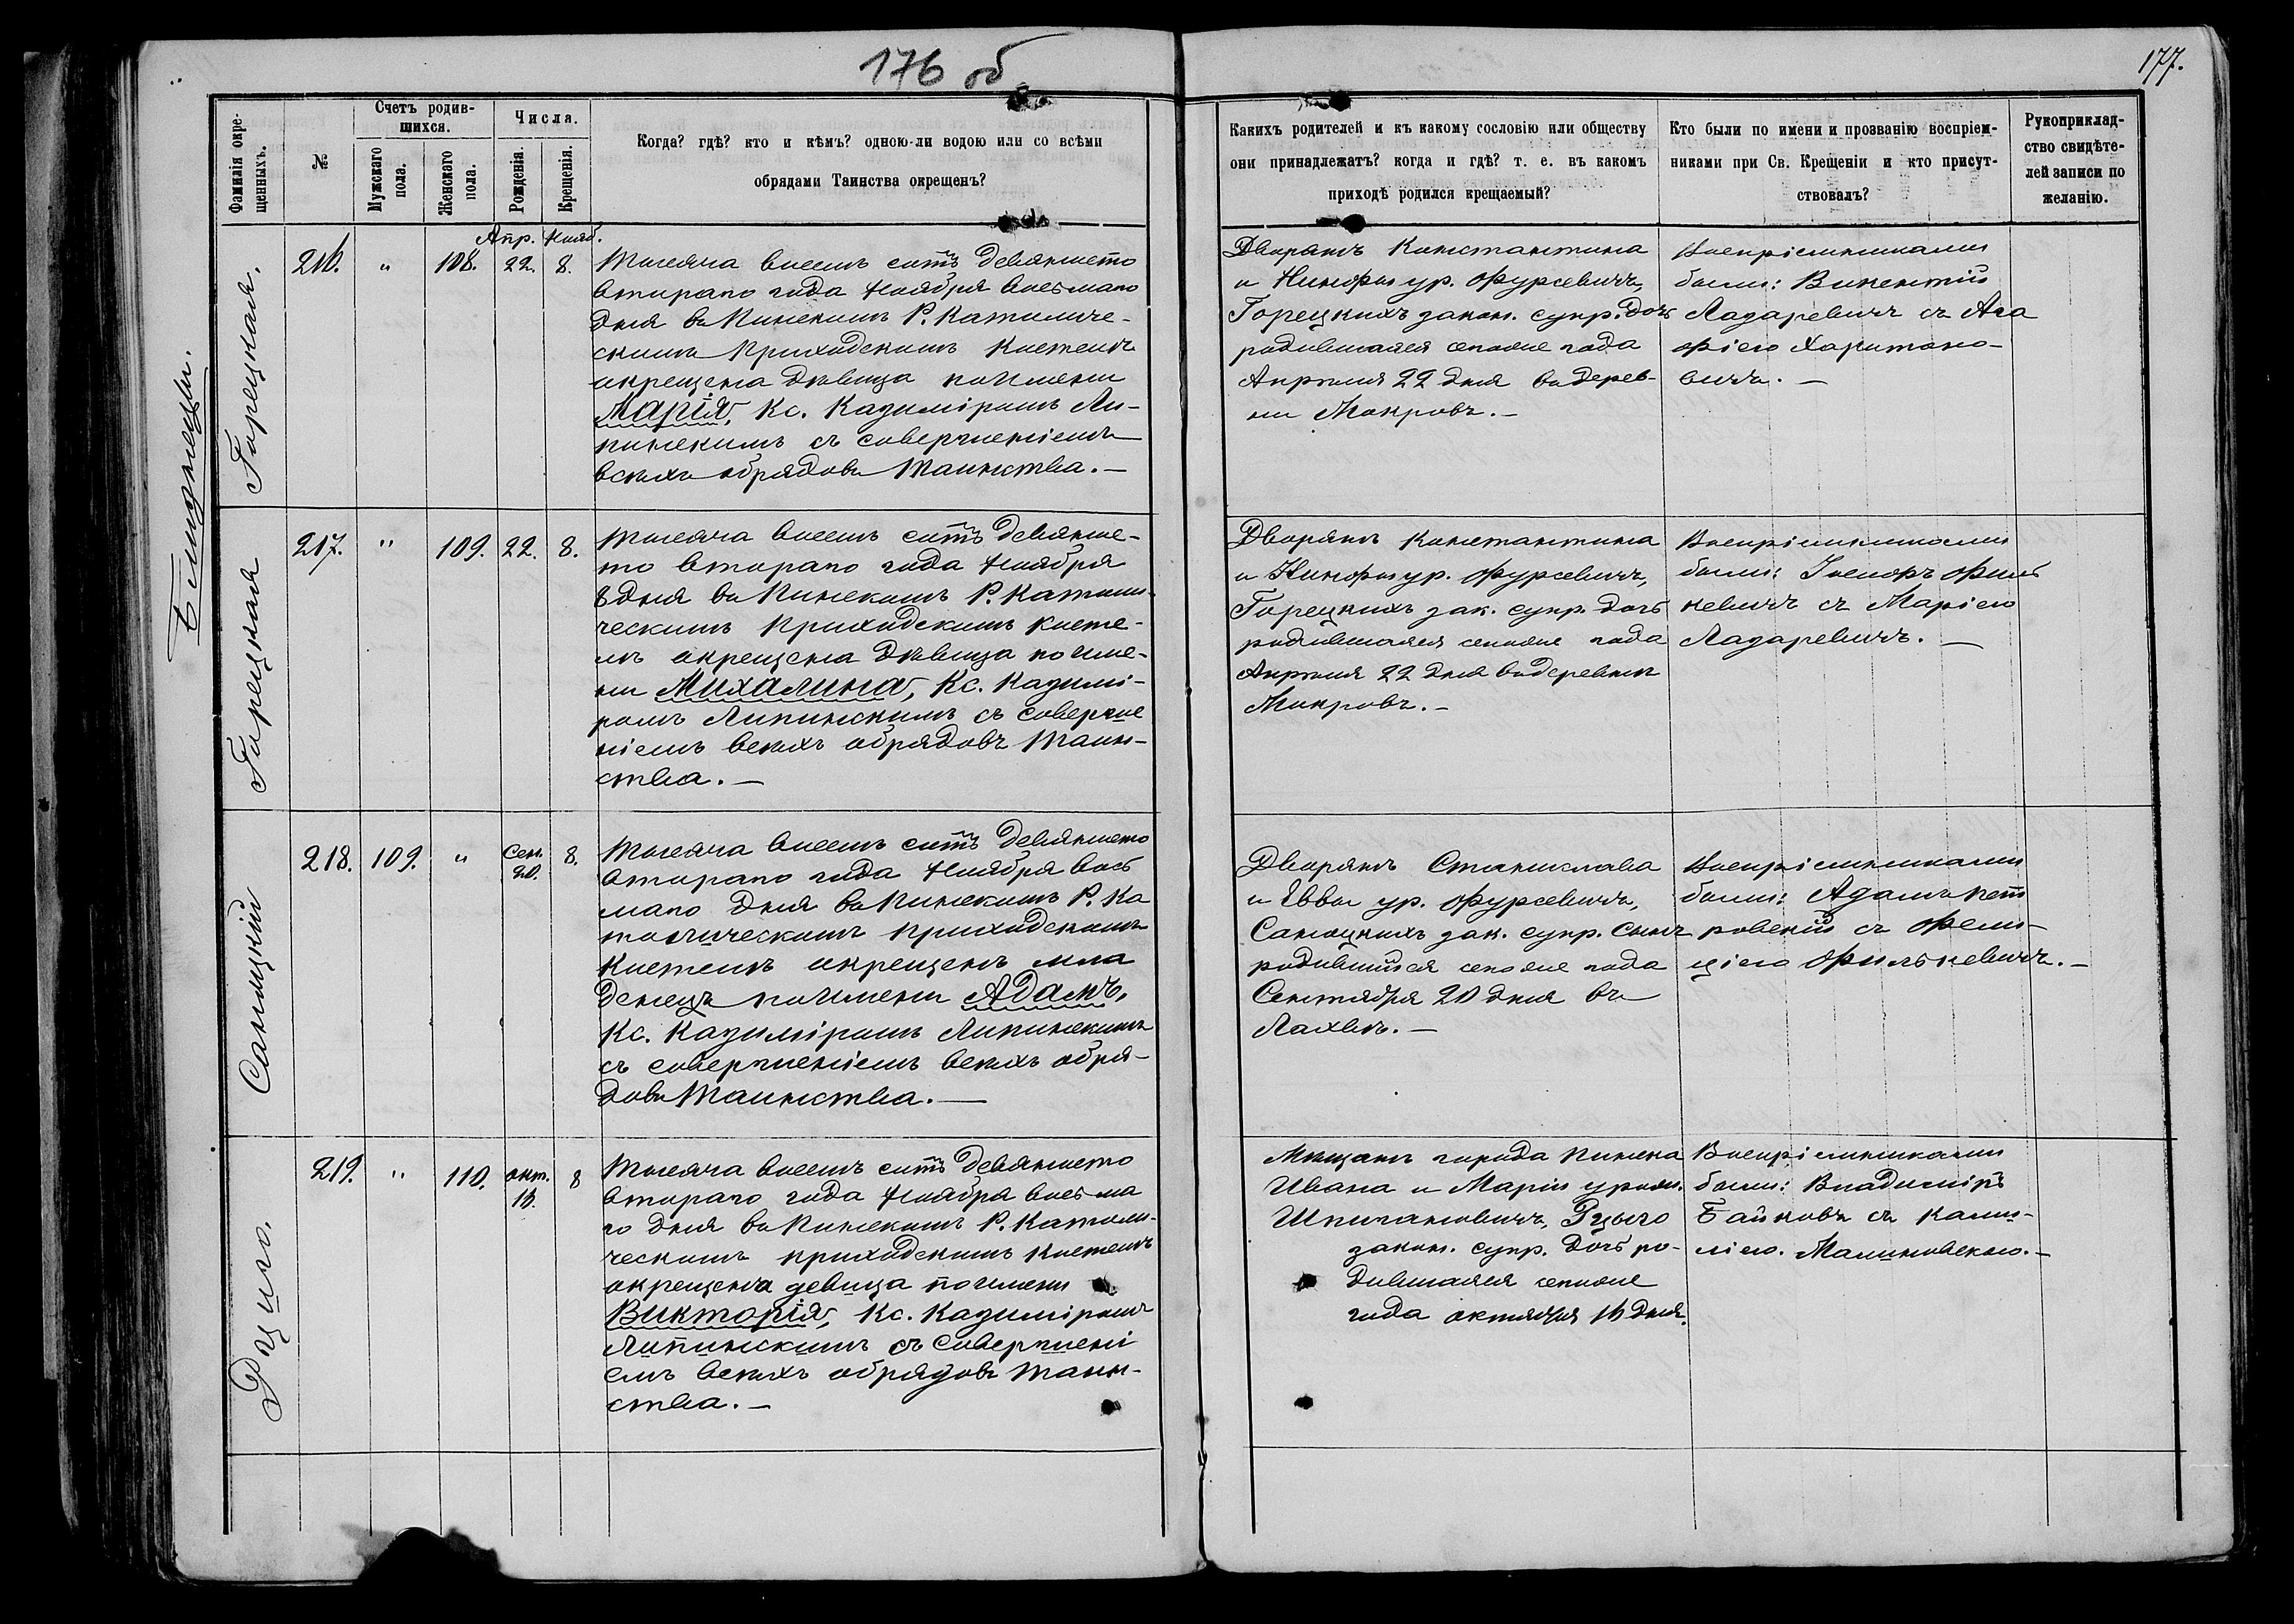 176 об
177.
Фамилія окрещенныхъ.
№
Счетъ родившихся.
Мужскаго пола.
Женскаго пола.
Числа.
Рожденія.
Крещенія.
Когда? гдѣ? кто и кѣмъ? одною-ли водою или со всѣми
обрядами Таинства окрещенъ?
Какихъ родителей и къ какому сословію или обществу
они принадлежатъ? когда и гдѣ? т. е. въ какомъ
приходѣ родился крещаемый?
Кто были по имени и прозванію воспріем-
никами при Св. Крещеніи и кто присут-
ствовалъ?
Рукоприклад-
ство свидѣте-
лей записи по
желанію.
Близнецы.
Горецкая.
216.
"
108.
Апр. 22.
Нояб. 8.
Тысяча восемь сотъ девяносто
втораго года Ноября восьмаго
дня въ Пинскомъ Р. Католиче-
скомъ приходскомъ костелѣ
окрещена дѣвица по имени
Марія, Кс. Казиміромъ Ли-
пинскимъ съ совершеніемъ
всѣхъ обрядовъ таинства.—
Дворянъ Константина
и Нимфы ур. Фурсевичъ,
Горецкихъ закон. супр. дочь
родившаяся сегоже года
Апрѣля 22 дня въ дерев-
ни Мокровъ.—
Воспріемниками
были: Викентій
Лазаревичъ съ Ага
фіею Харитоно-
вичъ.—
Горецкая
217.
"
109.
22.
8.
Тысяча восемь сотъ девянос-
то втораго года Ноября
8 дня въ Пинскомъ Р. Католи-
ческомъ приходскомъ косте-
лѣ окрещена дѣвица по име-
ни Михалина, Кс. Казимі-
ромъ Липинскимъ съ соверше
ніемъ всѣхъ обрядовъ таин-
ства.—
Дворянъ Константина
и Нимфы ур. Фурсевичъ,
Горецкихъ зак. супр. дочь
родившаяся сегоже года
Апрѣля 22 дня въ деревни
Мокровъ.—
Воспріемниками
были: Іосифъ Филь
кевичъ съ Маріею
Лазаревичъ.—
Саноцкій
218.
109.
"
Сен. 20.
8.
Тысяча восемь сотъ девяносто
втораго года Ноября вось
маго дня въ Пинскомъ Р. Ка
толическомъ приходскомъ
костелѣ окрещенъ мла
денецъ по имени Адамъ,
Кс. Казиміромъ Липинскимъ
съ совершеніемъ всѣхъ обря-
довъ таинства.—
Дворянъ Станислава
и Еввы ур. Фурсевичъ,
Саноцкихъ зак. супр. сынъ
родившійся сегоже года
Сентября 20 дня въ
Лахвѣ.—
Воспріемниками
были: Адамъ Пет
ровскій съ Фели-
ціею Филькевичъ.—
Рцыго.
219.
"
110.
окт. 16.
8
Тысяча восемь сотъ девяносто
втораго года Ноября восьма
го дня въ Пинскомъ Р. Католи-
ческомъ приходскомъ костелѣ
окрещена девица по имени
Викторія, Кс. Казиміромъ
Липинскимъ съ совершені
емъ всѣхъ обрядовъ таин-
ства.—
Мѣщанъ города Пинска
Ивана и Маріи урож.
Шпигановичъ, Рцыго
закон. супр. дочь ро-
дившаяся сегоже
года октября 16 дня.
Воспріемниками
были: Владиміръ
Байковъ съ Ками-
ліею. Малиновскою.—